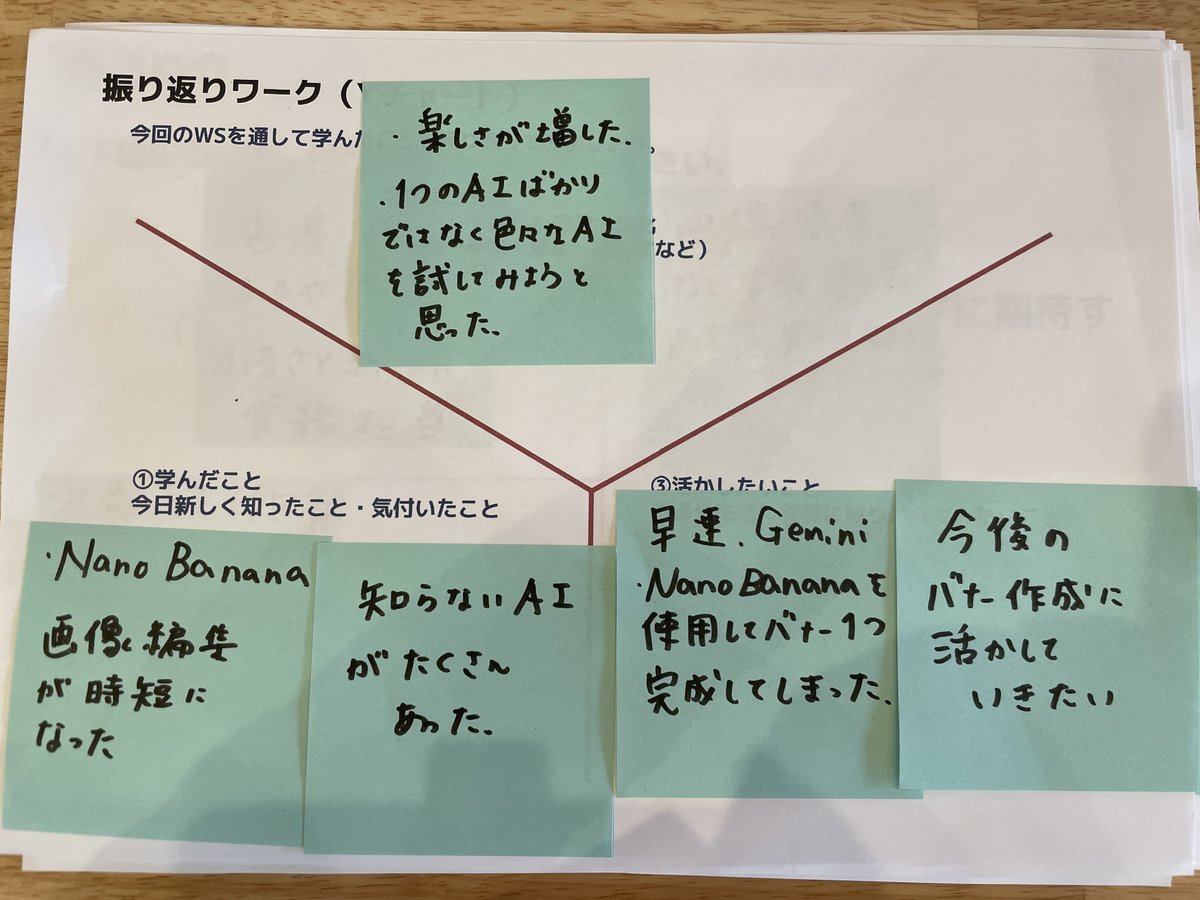 振り返りワーク（
今回のWSを通して学んだ
・楽しさが増した.
.1つのAIばかり
ではなく色々なAI
を試してみようと
思った.
など）
①学んだこと
今日新しく知ったこと・気付いたこと
・Nano Banana
画像編集
が時短に
なった
知らないAI
がたくさん
あった.
③活かしたいこと
早速. Gemini
・Nano Bananaを
使用してバナー1つ
完成してしまった.
今後の
バナー作成に
活かして
いきたい